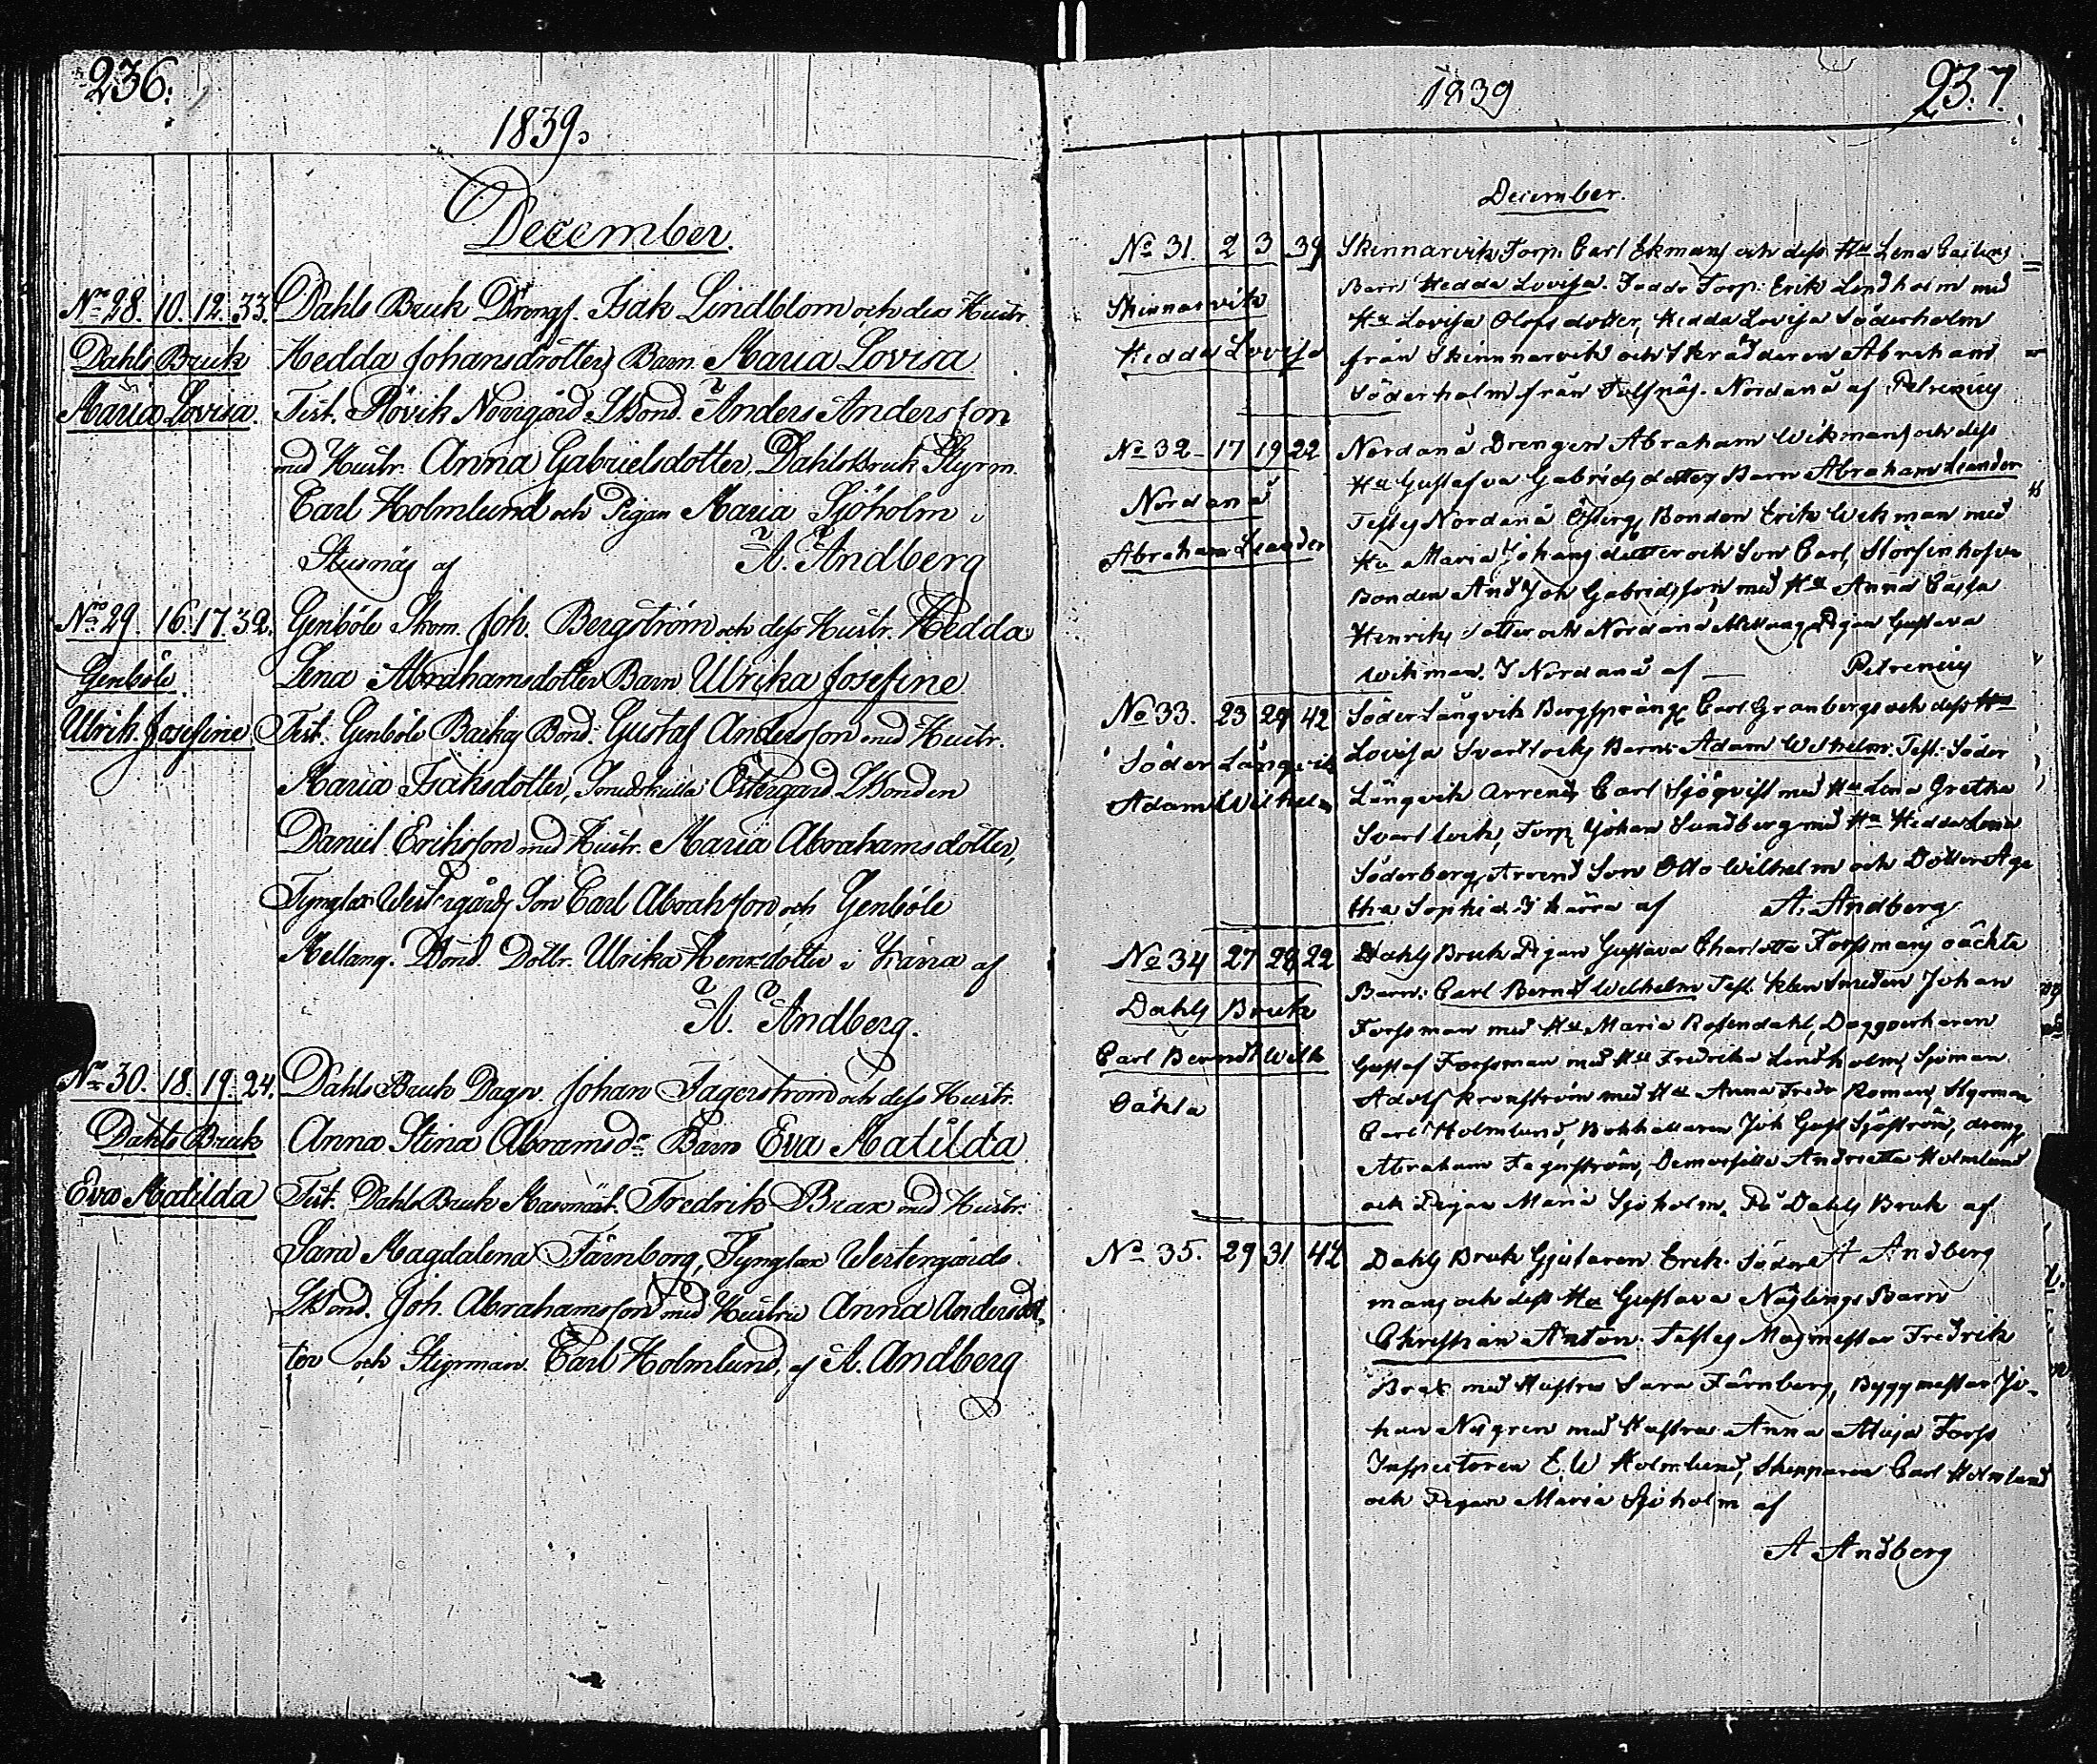 236.
1839.
December.
No 28. 10. 12. 33. Dahls Bruk Drengs. Isak Lindblom och dess Hustr.
Dahls Bruk Hedda Johansdotters Barn Maria Lovisa
Maria Lovisa. Test. Rövik Norrgård Bond. Anders Andersson
med Hustr. Anna Gabrielsdotter, Dahls Bruk Styrm.
Carl Holmlund och Pigan Maria Sjöholm i
af A. Andberg
No 29. 16. 17. 32. Genböle Skom. Joh. Bergström och dess Hustr. Hedda
Genböle Lena Abrahamsdotter Barn Ulrika Josefine
Ulrik. Josefine. Test. Genböle Backas Bond. Gustaf Andersson med Hustr.
Maria Isaksdotter, Östergård Bonden
Daniel Eriksson med Hustr. Maria Abrahamsdotter,
Tynglax Westergårds Son Carl Abrahsson och Genböle
Mellang. Bond. Dottr. Ulrika Henrsdotter i af
A. Andberg.
No 30. 18. 19. 24. Dahls Bruk Dagv. Johan Fagerström och dess Hustr.
Dahls Bruk Anna Stina Abramsdr Barn Eva Matilda
Eva Matilda Test. Dahls Bruk Masmäst. Fredrik Brax med Hustr.
Sara Magdalena Färnborg, Tynglax Westergårds
Bond. Joh. Abrahamsson med Hustru Anna Andersdot-
ter och Styrman Carl Holmlund, af A. Andberg
1839
237.
December.
No 31. 2 3 39 Skinnarvik Torp. Carl Ekmans och dess Hu Lena Cajsas
Skinnarvik Barn Hedda Lovisa. Faddr Torp. Erik Lindholm med
Hedda Lovisa Hu Lovisa Olofsdotter, Hedda Lovisa Söderholm
från Skinnnarvik och Skräddaren Abraham
Söderholm från Nordanå af Petrenius
No 32 17 19 22 Nordanå Drengen Abraham Wikmans och dess
Nordanå Hu Gustafva Gabrielsdotters Barn Abraham Leander
Abraham Leander Testes Nordanå Österg. Bonden Erik Wikman med
Hu Maria Johansdotter och Son Carl, Storfinhofva
Bonden And Joh Gabrielsson med Hu Anna Cajsa
Henriksdotter och Nordanå Mellang. Pigan Gustava
Wikman. I Nordanå af Petrenius
No 33. 23 29 42 Söder Långvik Bergsprängr Carl Granbergs och dess Hu
Söder Långvik Lovisa Svartlocks Barn Adam Wilhelm. Test. Söder
Adam Wilhelm Långvik Arrend Carl Sjöqvist med Hu Lena Gretha
Svartlock, Torp Johan Sundberg med Hu Hedda Lena
Söderberg, Arrend Son Otto Wilhelm och Dotter Aga
tha Sophia. I af A. Andberg
No 34 27 28 22 Dahls Bruk Pigan Gustava Charlotta Forssmans oächta
Dahls Bruk Barn: Carl Bernd Wilhelm Test. Klensmeden Johan
Carl Berndt Wilh Forssman med Hu Maria Rosendahl, Daggverkaren
Oäkta Gustaf Forssman med Hu Fredrika Lindholm, Sjöman
Adolf Kronström med Hu Anna Fredr Roman, Styrman
Carl Holmlund, Bokhållaren Joh Gust Sjöström, dreng
Abraham Fagerström, Demoiselle Andrietta Holmlund
och Pigan Maria Sjöholm. På Dahls Bruk af
A Andberg
No 35. 29 31 42 Dahls Bruk Gjutaren Erik Söder
mans och dess Hu Gustava Näslings Barn
Christian Anton. Testes Masmestar Fredrik
Brax med Hustru Sara Färnberg, Byggmestar Jo-
han Nygren med Hustru Anna Maja Forss
Inspectoren E.W Holmlund, Skepparen Carl Holmlund
och Pigan Maria Sjöholm af
A Andberg